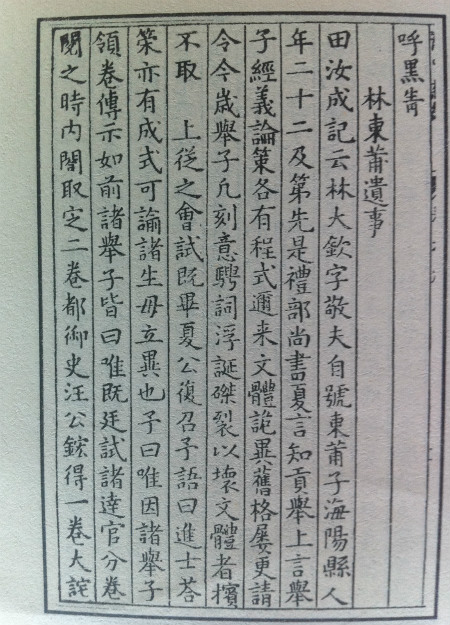 呼黑眚
林東莆遺事
田汝成記云林大欽字敬夫自號東莆子海陽縣人
年二十二及第先是禮部尚書夏言知貢舉上言舉
子經義論策各有程式邇来文體詭異舊格屡更請
令今歲舉子凢刻意騁詞浮誕磔裂以壞文體者擯
不取　上從之會試既畢夏公復召予語曰進士荅
策亦有成式可諭諸生毋立異也予曰唯因諸舉子
領卷傳示如前諸舉子皆曰唯既廷試諸達官分卷
閱之時内閣取定二卷都御史汪公鋐得一卷大詫